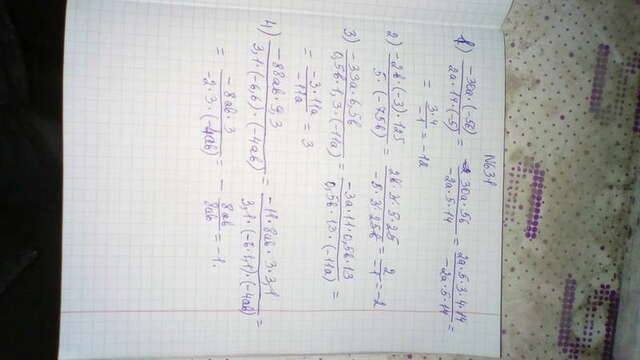 №631
1) -30a·(-56) / 2a·14·(-5) = 30a·56 / -2a·5·14 = 2a·5·3·4·14 / -2a·5·14 =
= 3·4 / -1 = -12
2) -2b·(-3)·125 / 5·(-75b) = 2b·3·5·25 / -5·3·25b = 2 / -1 = -2
3) -33a·6,5b / 0,5b·1,3·(-11a) = -3a·11·0,5b·13 / 0,5b·13·(-11a) =
= -3·11a / -11a = 3
4) -88ab·9,3 / 3,1·(-6,6)·(-4ab) = -11·8ab·3·3,1 / 3,1·(-6·1,1)·(-4ab) =
= -8ab·3 / -2·3·(-4ab) = - 8ab / 8ab = -1.